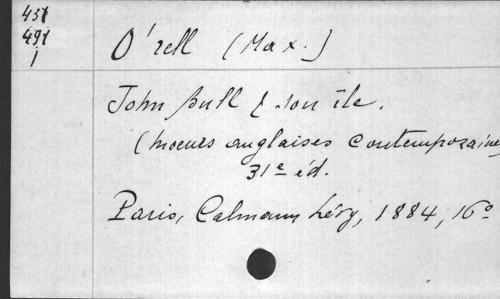 431
491
j
O'rell (Max.)
John Bull & son île.
(moeurs anglaises contemporaines
31e éd.
Paris, Calmann Lévy, 1884, 16o